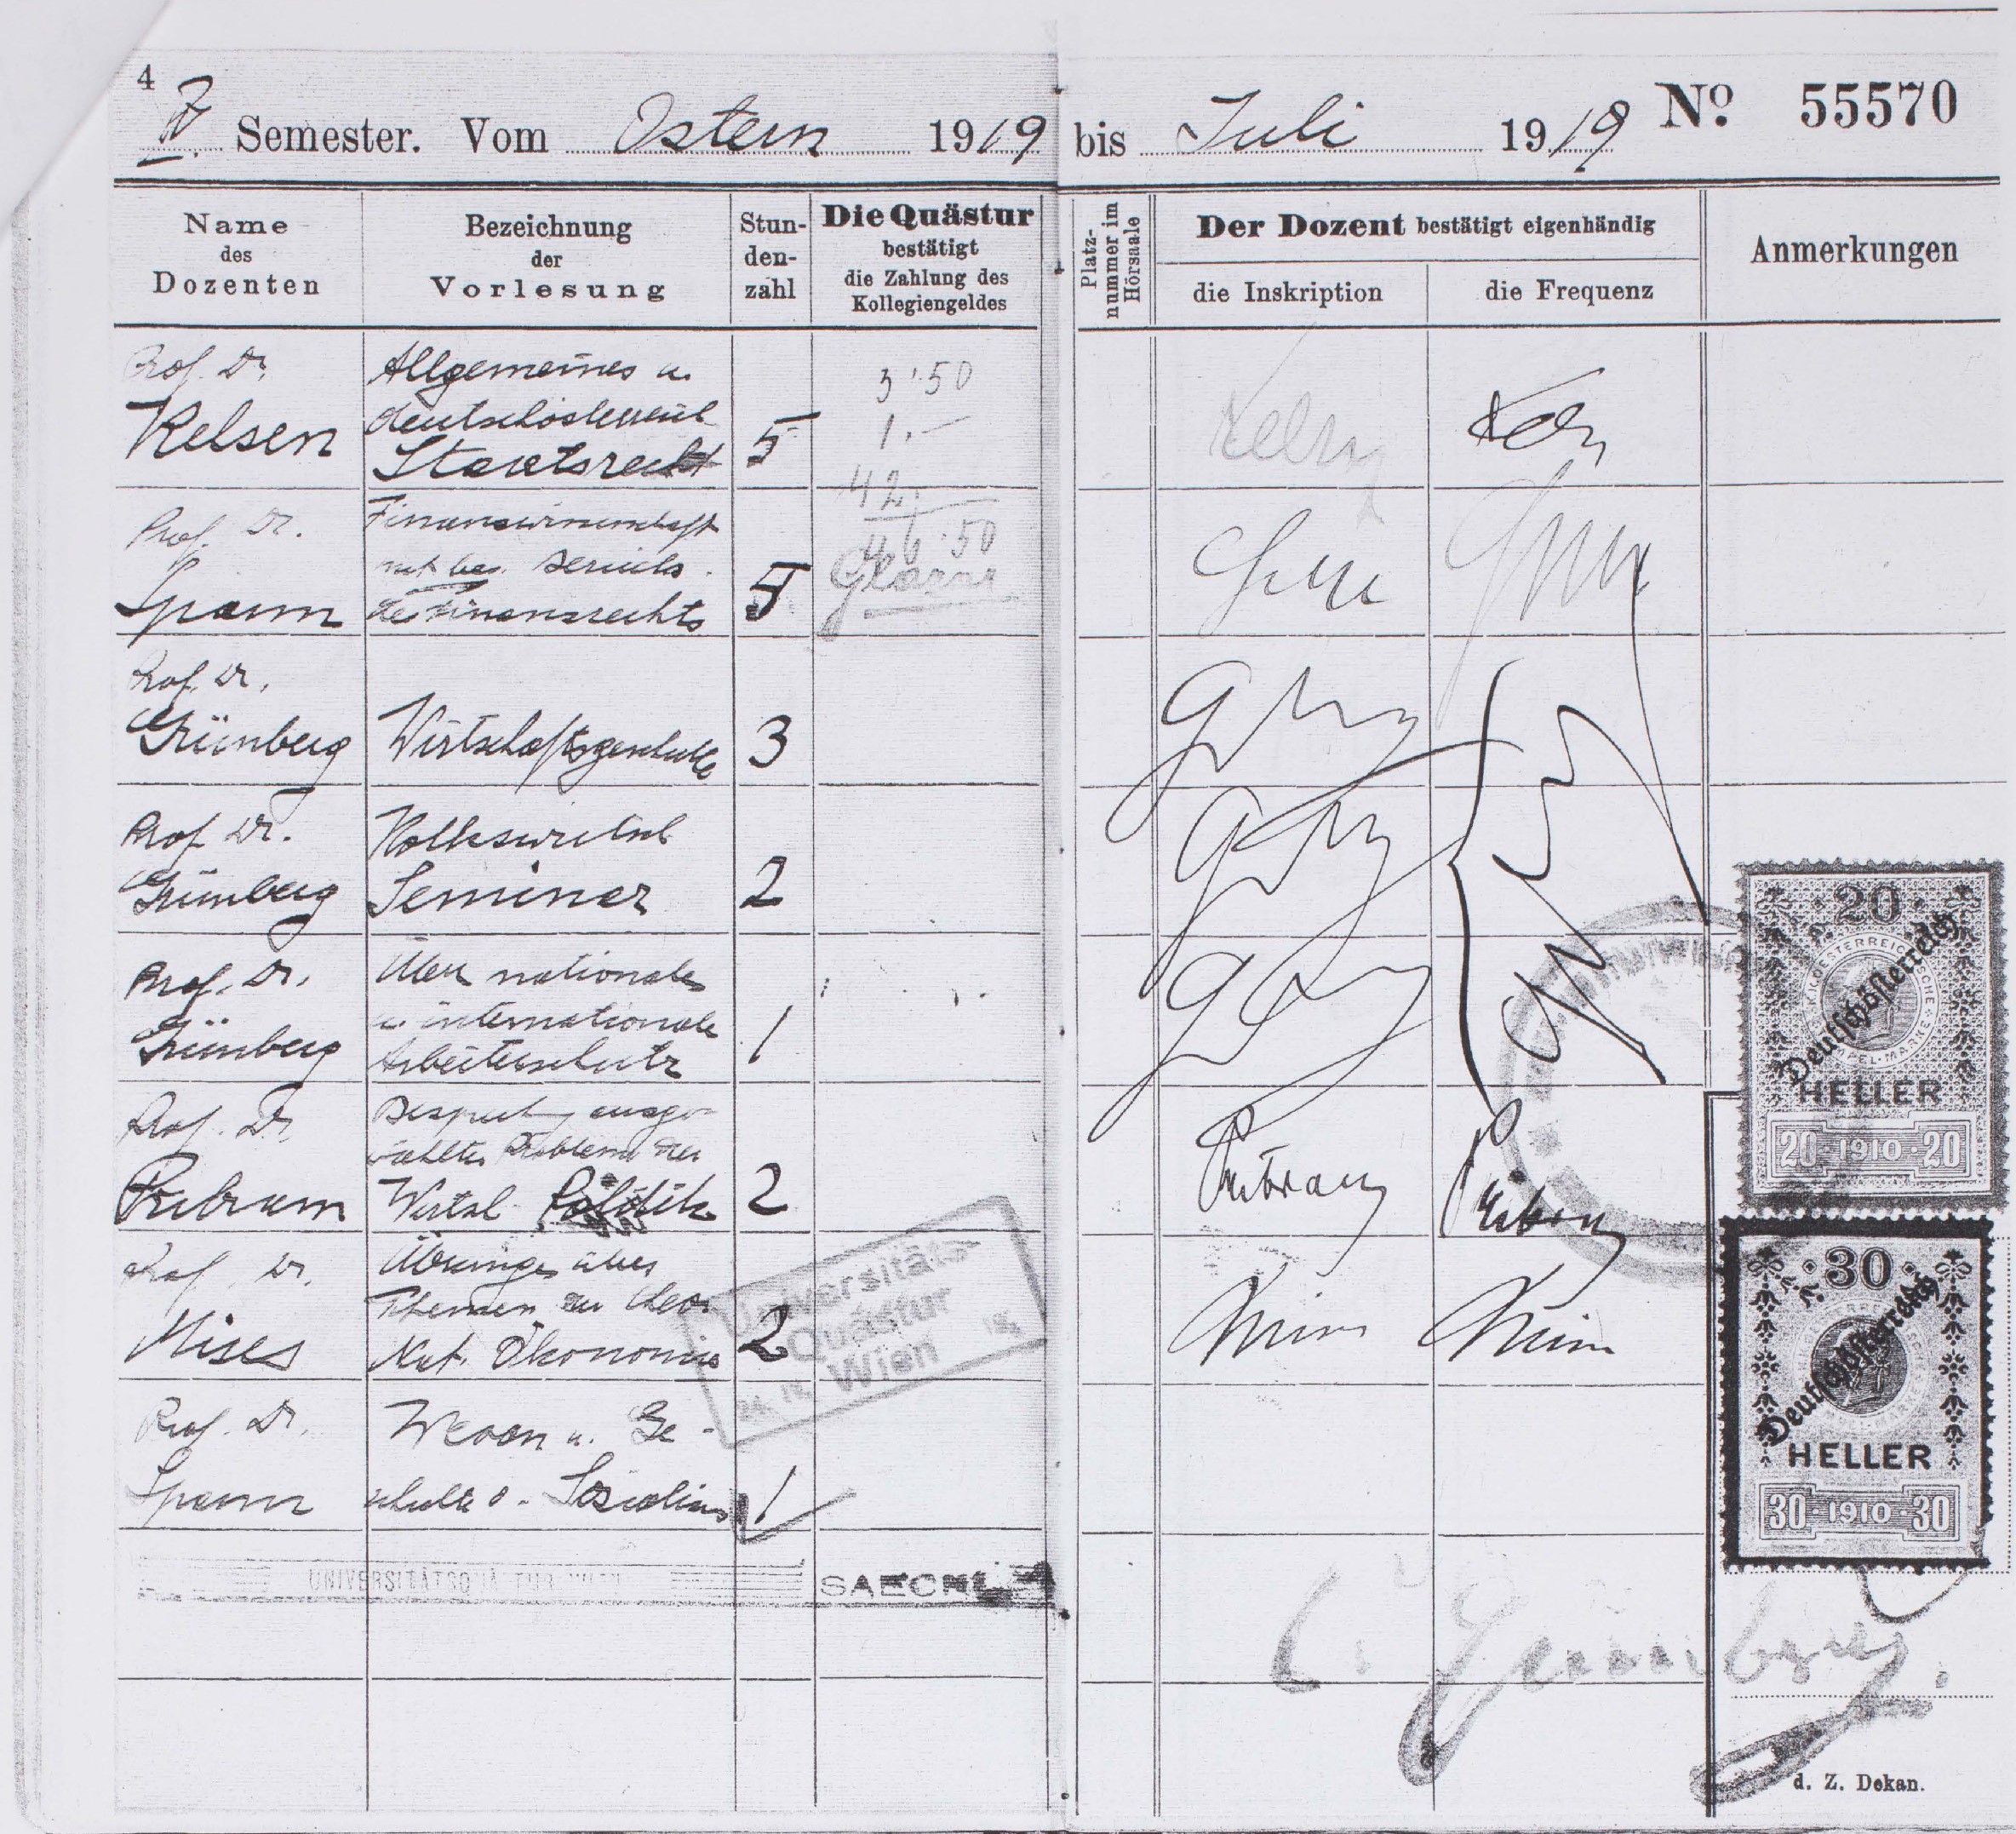 4
IV. Semester. Vom Ostern 1919 bis Juli 1919 No. 55570
Name
des
Dozenten
Bezeichnung
der
Vorlesung
Stun-
den-
zahl
Die Quästur
bestätigt
die Zahlung des
Kollegiengeldes
Platz-
nummer im
Hörsaale
Der Dozent bestätigt eigenhändig
die Inskription
die Frequenz
Anmerkungen
Prof. Dr.
Kelsen
Allgemeines u.
deutschösterreich
Staatsrecht
5
3.50
1.-
42.
46.50
Prof. Dr.
Spann
Finanzwissenschaft
mit bes. Berücks.
des Finanzrechts
5
Prof. Dr.
Grünberg
Wirtschaftsgeschichte
3
Prof. Dr.
Grünberg
Volkswirtsch
Seminar
2
Prof. Dr.
Grünberg
Über nationale
u. internationale
Arbeiterschutz
1
Prof. Dr.
Pribram
Besprechung ausge-
wählter Probleme der
Wirtsch. Politik
2
Pribram
Pribram
Prof. Dr.
Mises
Übungen über
Themen der theor.
Nat. Ökonomie
2
Mises
Mises
Prof. Dr.
Spann
Wesen u. Ge-
schichte d. Sozialismus
1
Universitäts
Quästur
Wien
UNIVERSITÄTSQUÄSTUR WIEN
20
Deutschösterreich
K.K. OESTERREICHISCHE STEMPEL-MARKE
HELLER
20 · 1910 · 20
30
Deutschösterreich
HELLER
30 · 1910 · 30
C. Grünberg
d. Z. Dekan.